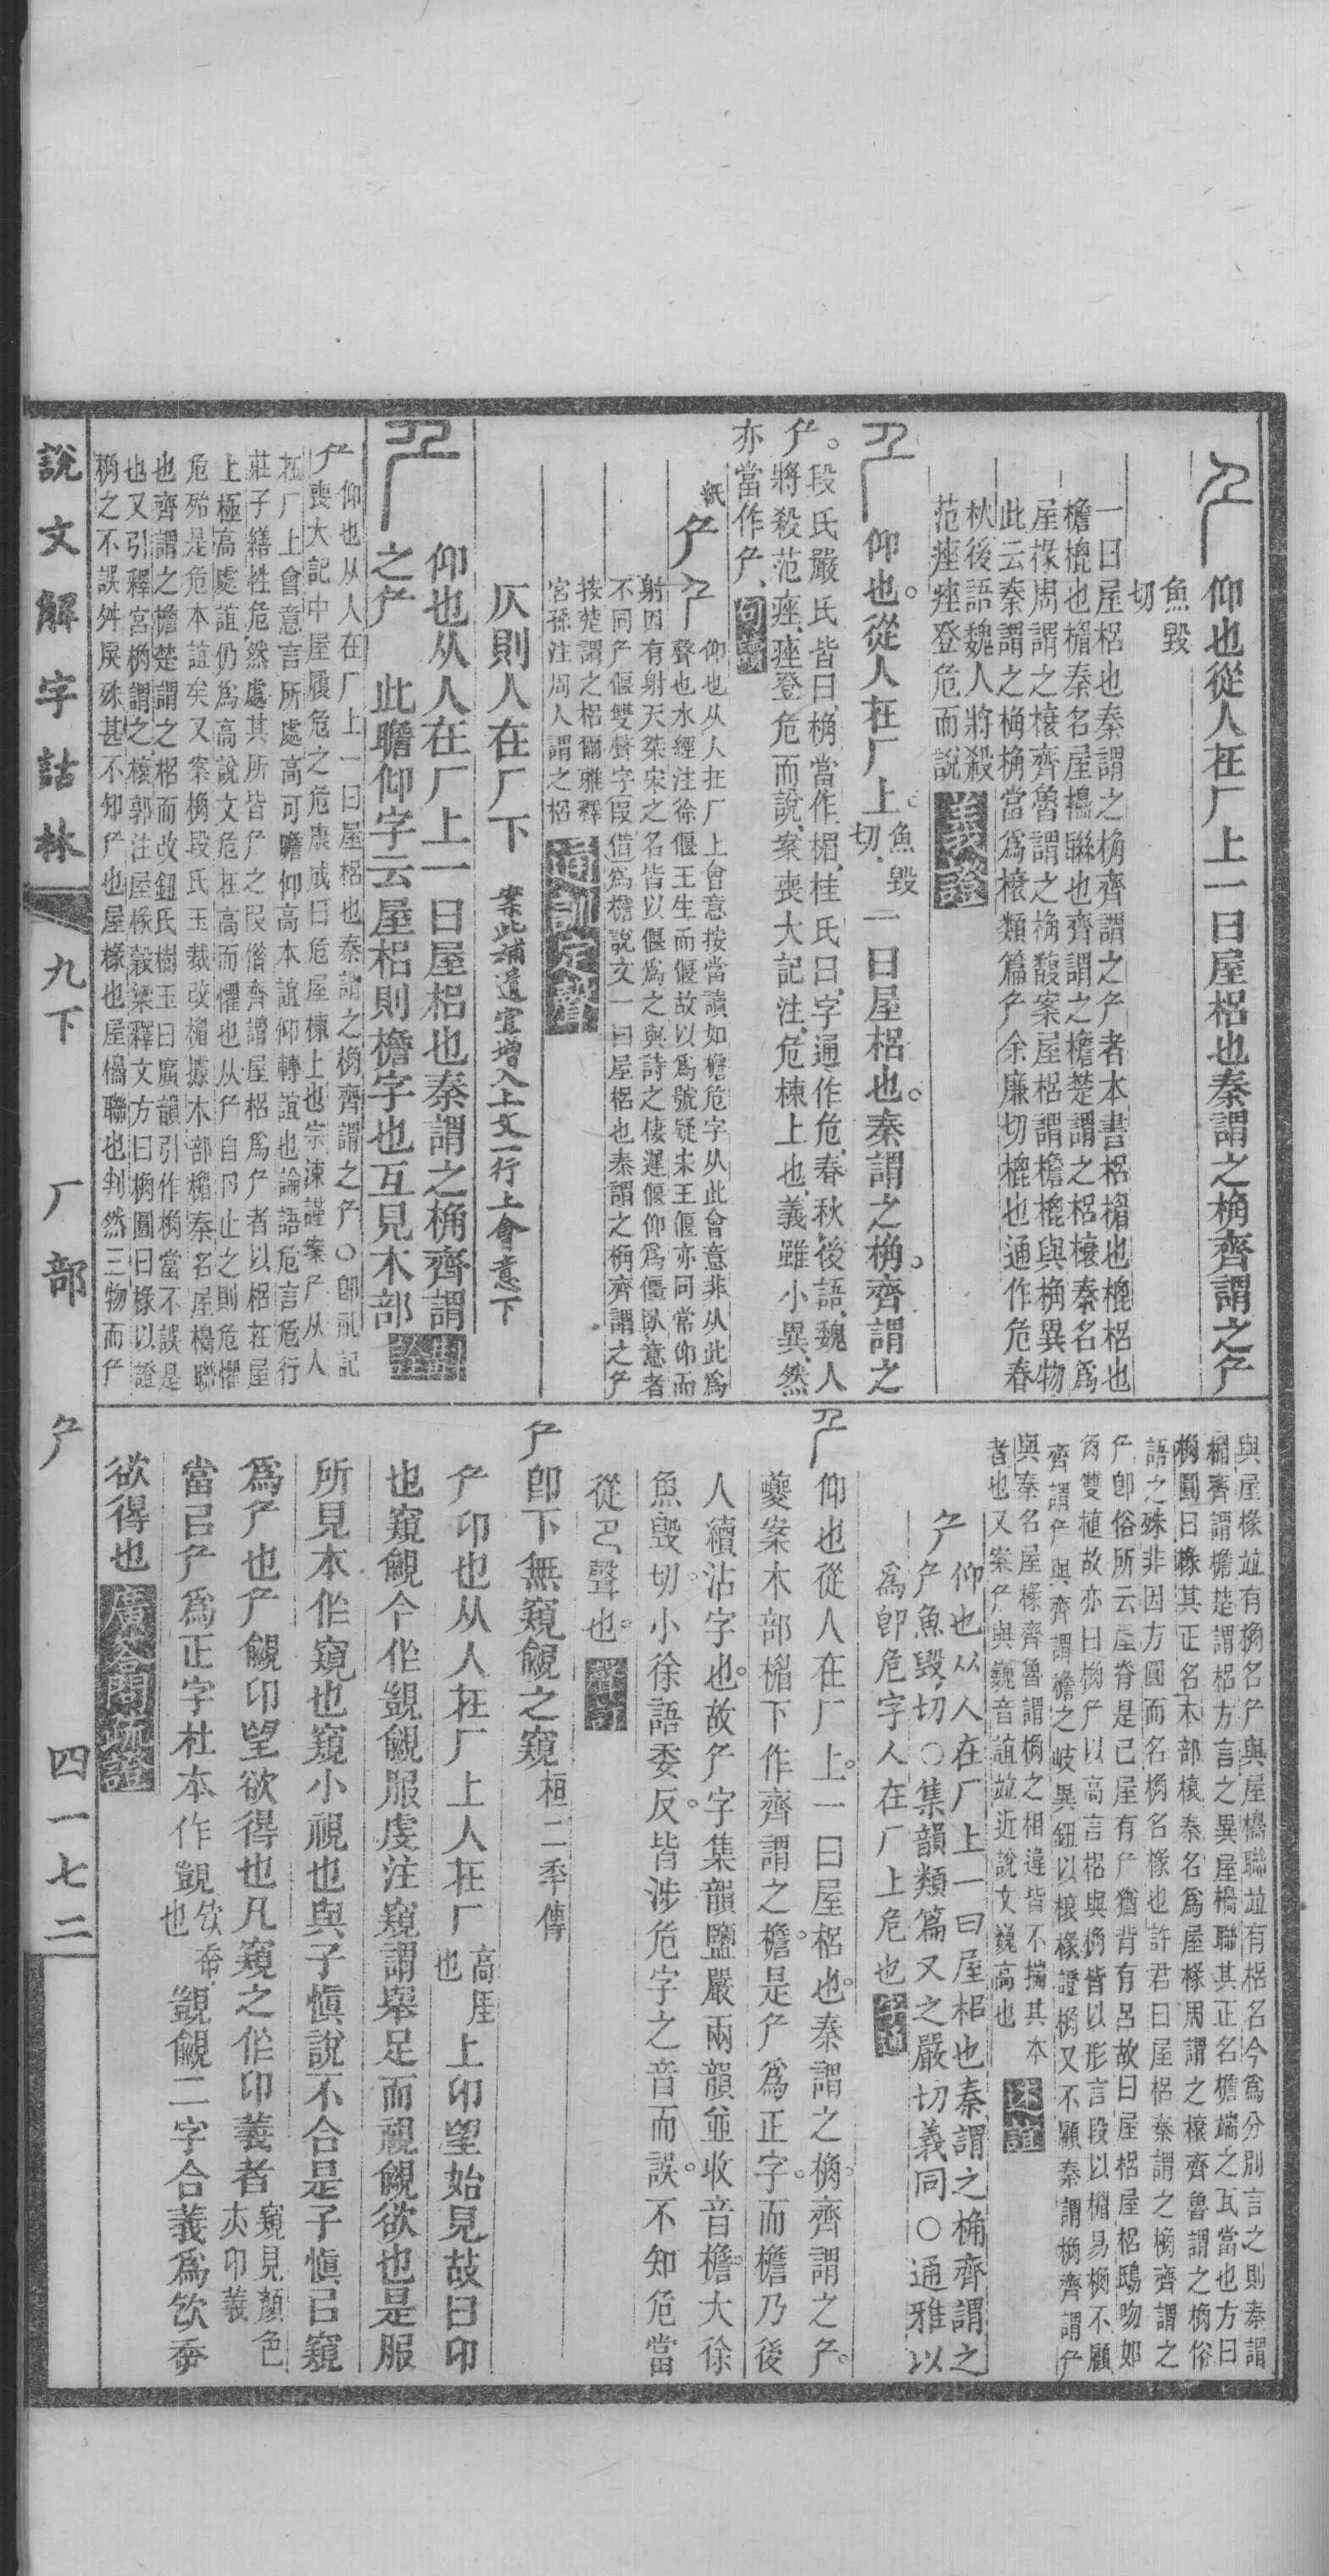 仰也從人在厂上一曰屋梠也秦謂之桷齊謂之厃
魚毀
切
一曰屋梠也秦謂之桷齊謂之厃者本書梠楣也槐梠也
檐槐也楣秦名屋櫋聯也齊謂之檐楚謂之梠榱秦名爲
屋椽周謂之榱齊魯謂之桷馥案屋梠謂檐槐與桷異物
此云秦謂之桷桷當爲榱類篇厃余廉切槐也通作危春
秋後語魏人將殺
范痤痤登危而說
仰也。從人在厂上。魚毀切、一曰屋梠也。秦謂之桷。齊謂之
厃。段氏嚴氏皆曰、桷當作楣、桂氏曰、字通作危、春秋後語、魏人
將殺范痤、痤登危而說、案喪大記注、危棟上也、義雖小異、然
亦當作厃、
紙
厃
仰也从人在厂上會意按當讀如檐危字从此會意非从此爲
聲也水經注徐偃王生而偃故以爲號疑末王偃亦同常仰而
射因有射天桀宋之名皆以偃爲之與詩之棲遲偃仰爲僵臥意者
不同厃偃雙聲字叚借爲檐說文一曰屋梠也秦謂之桷齊謂之厃
按楚謂之梠爾雅釋
宮孫注周人謂之梠
仄則人在厂下 案此補遺宜增入上文一行上會意下
仰也从人在厂上一曰屋梠也秦謂之桷齊謂
之厃 此瞻仰字云屋梠則檐字也互見木部
厃
仰也从人在厂上一曰屋梠也秦謂之桷齊謂之厃○卽䢋記
喪大記中屋履危之危康成曰危屋棟上也宗涑謹案厃从人
在厂上會意言所處高可瞻仰高本誼仰轉誼也論語危言危行
莊子繕性危然處其所皆厃之叚借齊謂屋梠爲厃者以梠在屋
上極高處誼仍爲高說文危在高而懼也从厃自卪止之則危懼
危殆是危本誼矣又案桷段氏玉裁改楣據木部楣秦名屋櫋聯
也齊謂之檐楚謂之梠而改鈕氏樹玉曰廣韻引作桷當不誤是
也又引釋宮桷謂之榱郭注屋椽穀梁釋文方曰桷圓曰椽以證
桷之不誤舛戾殊甚不知厃也屋椽也屋櫋聯也判然三物而厃
說文解字詁林 九下 厂部 厃 四一七二
與屋椽竝有桷名厃與屋櫋聯竝有梠名今爲分別言之則秦謂
楣齊謂檐楚謂梠方言之異屋櫋聯其正名檐端之瓦當也方曰
桷圓曰椽其正名木部榱秦名爲屋椽周謂之榱齊魯謂之桷俗
語之殊非因方圓而名桷名椽也許君曰屋梠秦謂之桷齊謂之
厃卽俗所云屋脊是已屋有厃猶背有呂故曰屋梠屋梠鴟吻如
角雙植故亦曰桷厃以高言梠與桷皆以形言段以楣易桷不顧
齊謂厃與齊謂檐之岐異鈕以榱椽證桷又不顧秦謂桷齊謂厃
與秦名屋椽齊魯謂桷之相違皆不揣其本
者也又案厃與巍音誼竝近說文巍高也
厃
仰也从人在厂上一曰屋梠也秦謂之桷齊謂之
厃魚毀切○集韻類篇又之嚴切義同○通雅以
爲卽危字人在厂上危也
仰也從人在厂上。一曰屋梠也。秦謂之桷。齊謂之厃。
夔案木部楣下作齊謂之檐。是厃爲正字。而檐乃後
人續沾字也。故厃字集韻鹽嚴兩韻並收音檐。大徐
魚毀切。小徐語委反。皆涉危字之音而誤。不知危當
從㔾聲也。
厃卽下無窺覦之窺 桓二年傳
厃卬也从人在厂上人在厂 高厓也 上卬望始見故曰卬
也窺覦今作覬覦服虔注窺謂舉足而視覦欲也是服
所見本作窺也窺小視也與子愼說不合是子愼已窺
爲厃也厃覦卬望欲得也凡窺之作卬義者 窺見顏色夾卬義
當已厃爲正字杜本作覬 㰟㱀也 覬覦二字合義爲㰟㱀
欲得也